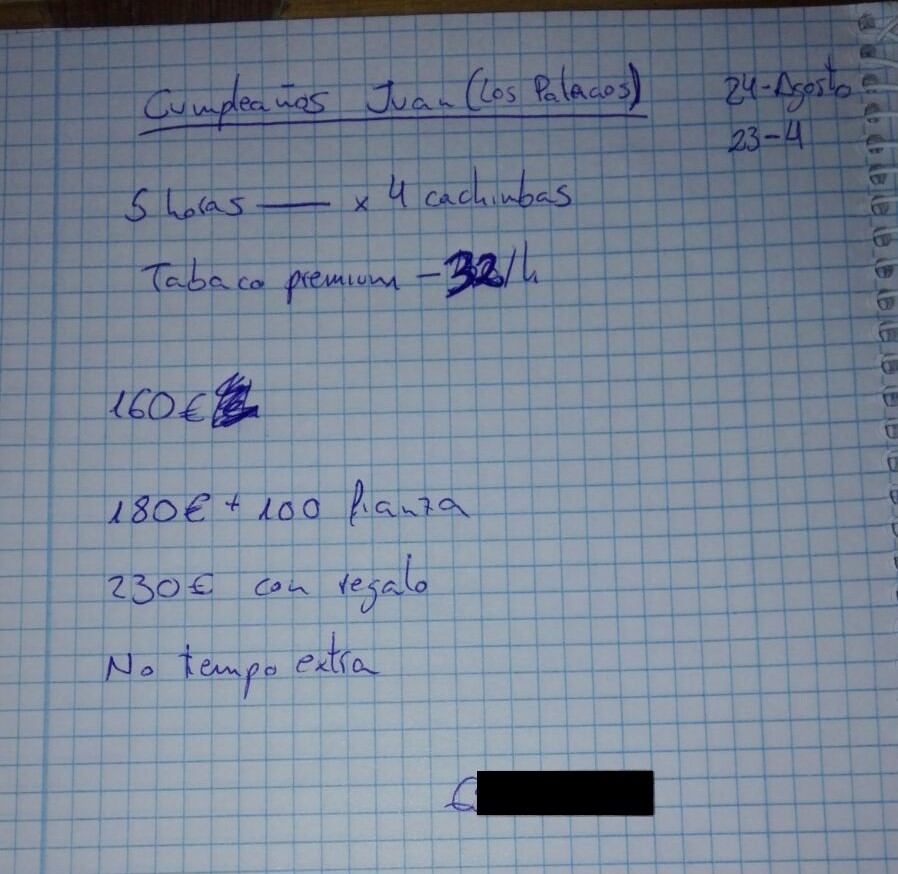 Cumpleaños Juan (Los Palacios)
24-Agosto
23-4
5 horas — x 4 cachimbas
Tabaco premium - 32/h
160€
180€ + 100 fianza
230€ con regalo
No tempo extra